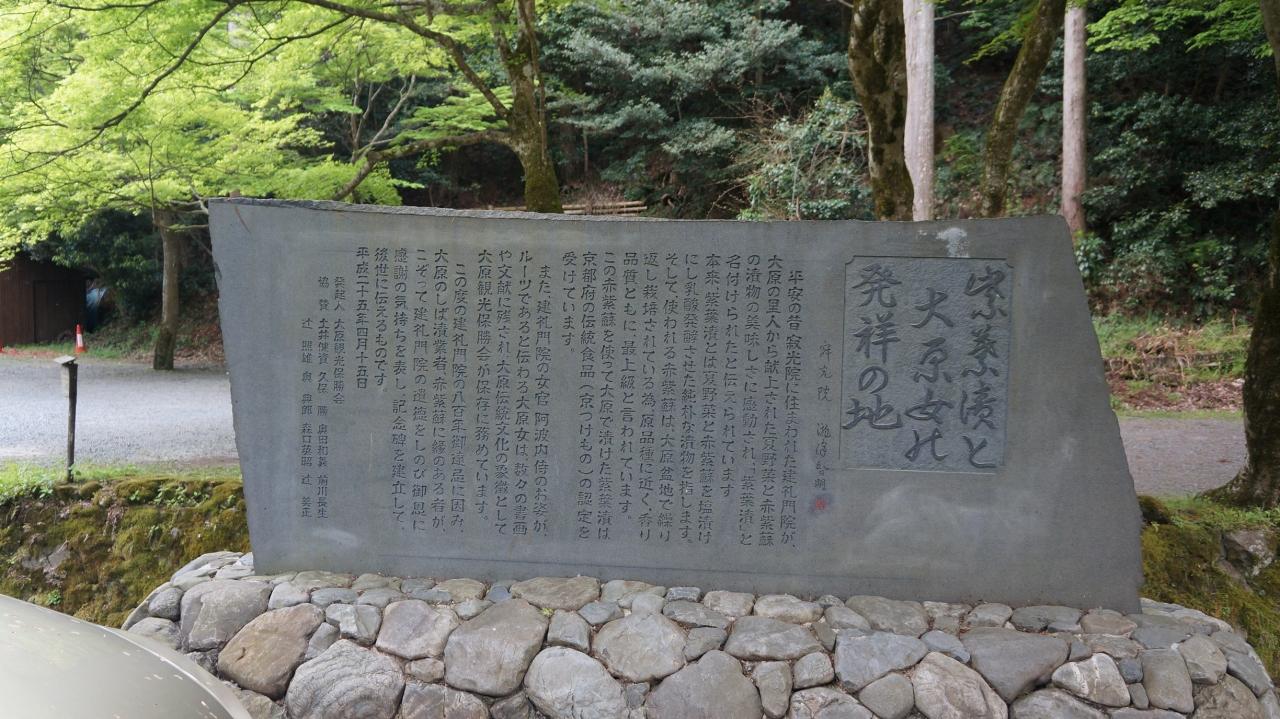 紫葉漬と
大原女の
発祥の地
平安の昔寂光院に住まわれた建礼門院が、
大原の里人から献上された夏野菜と赤紫蘇
の漬物の美味しさに感動され、「紫葉漬」と
名付けられたと伝えられています
本来、紫葉漬とは夏野菜と赤紫蘇を塩漬け
にし乳酸発酵させた純朴な漬物を指します。
そして、使われる赤紫蘇は、大原盆地で繰り
返し栽培されている為、原品種に近く、香り
品質ともに、最上級と言われています。
この赤紫蘇を使って大原で漬けた紫葉漬は
京都府の伝統食品(京つけもの)の認定を
受けています。
また、建礼門院の女官 阿波内侍のお姿が、
ルーツであると伝わる大原女は、数々の書画
や文献に残され大原伝統文化の象徴として
大原観光保勝会が保存に務めています。
この度の建礼門院の八百年御遠忌に因み、
大原のしば漬業者、赤紫蘇に縁のある者が、
こぞって建礼門院の遺徳をしのび御恩に
感謝の気持ちを表し、記念碑を建立して、
後世に伝えるものです。
平成二十五年四月十五日
発起人 大原観光保勝会
協 賛 土井健資 久保 勝 奥田和義 前川長生
辻 照雄 與 典郎 森口英昭 辻 美正